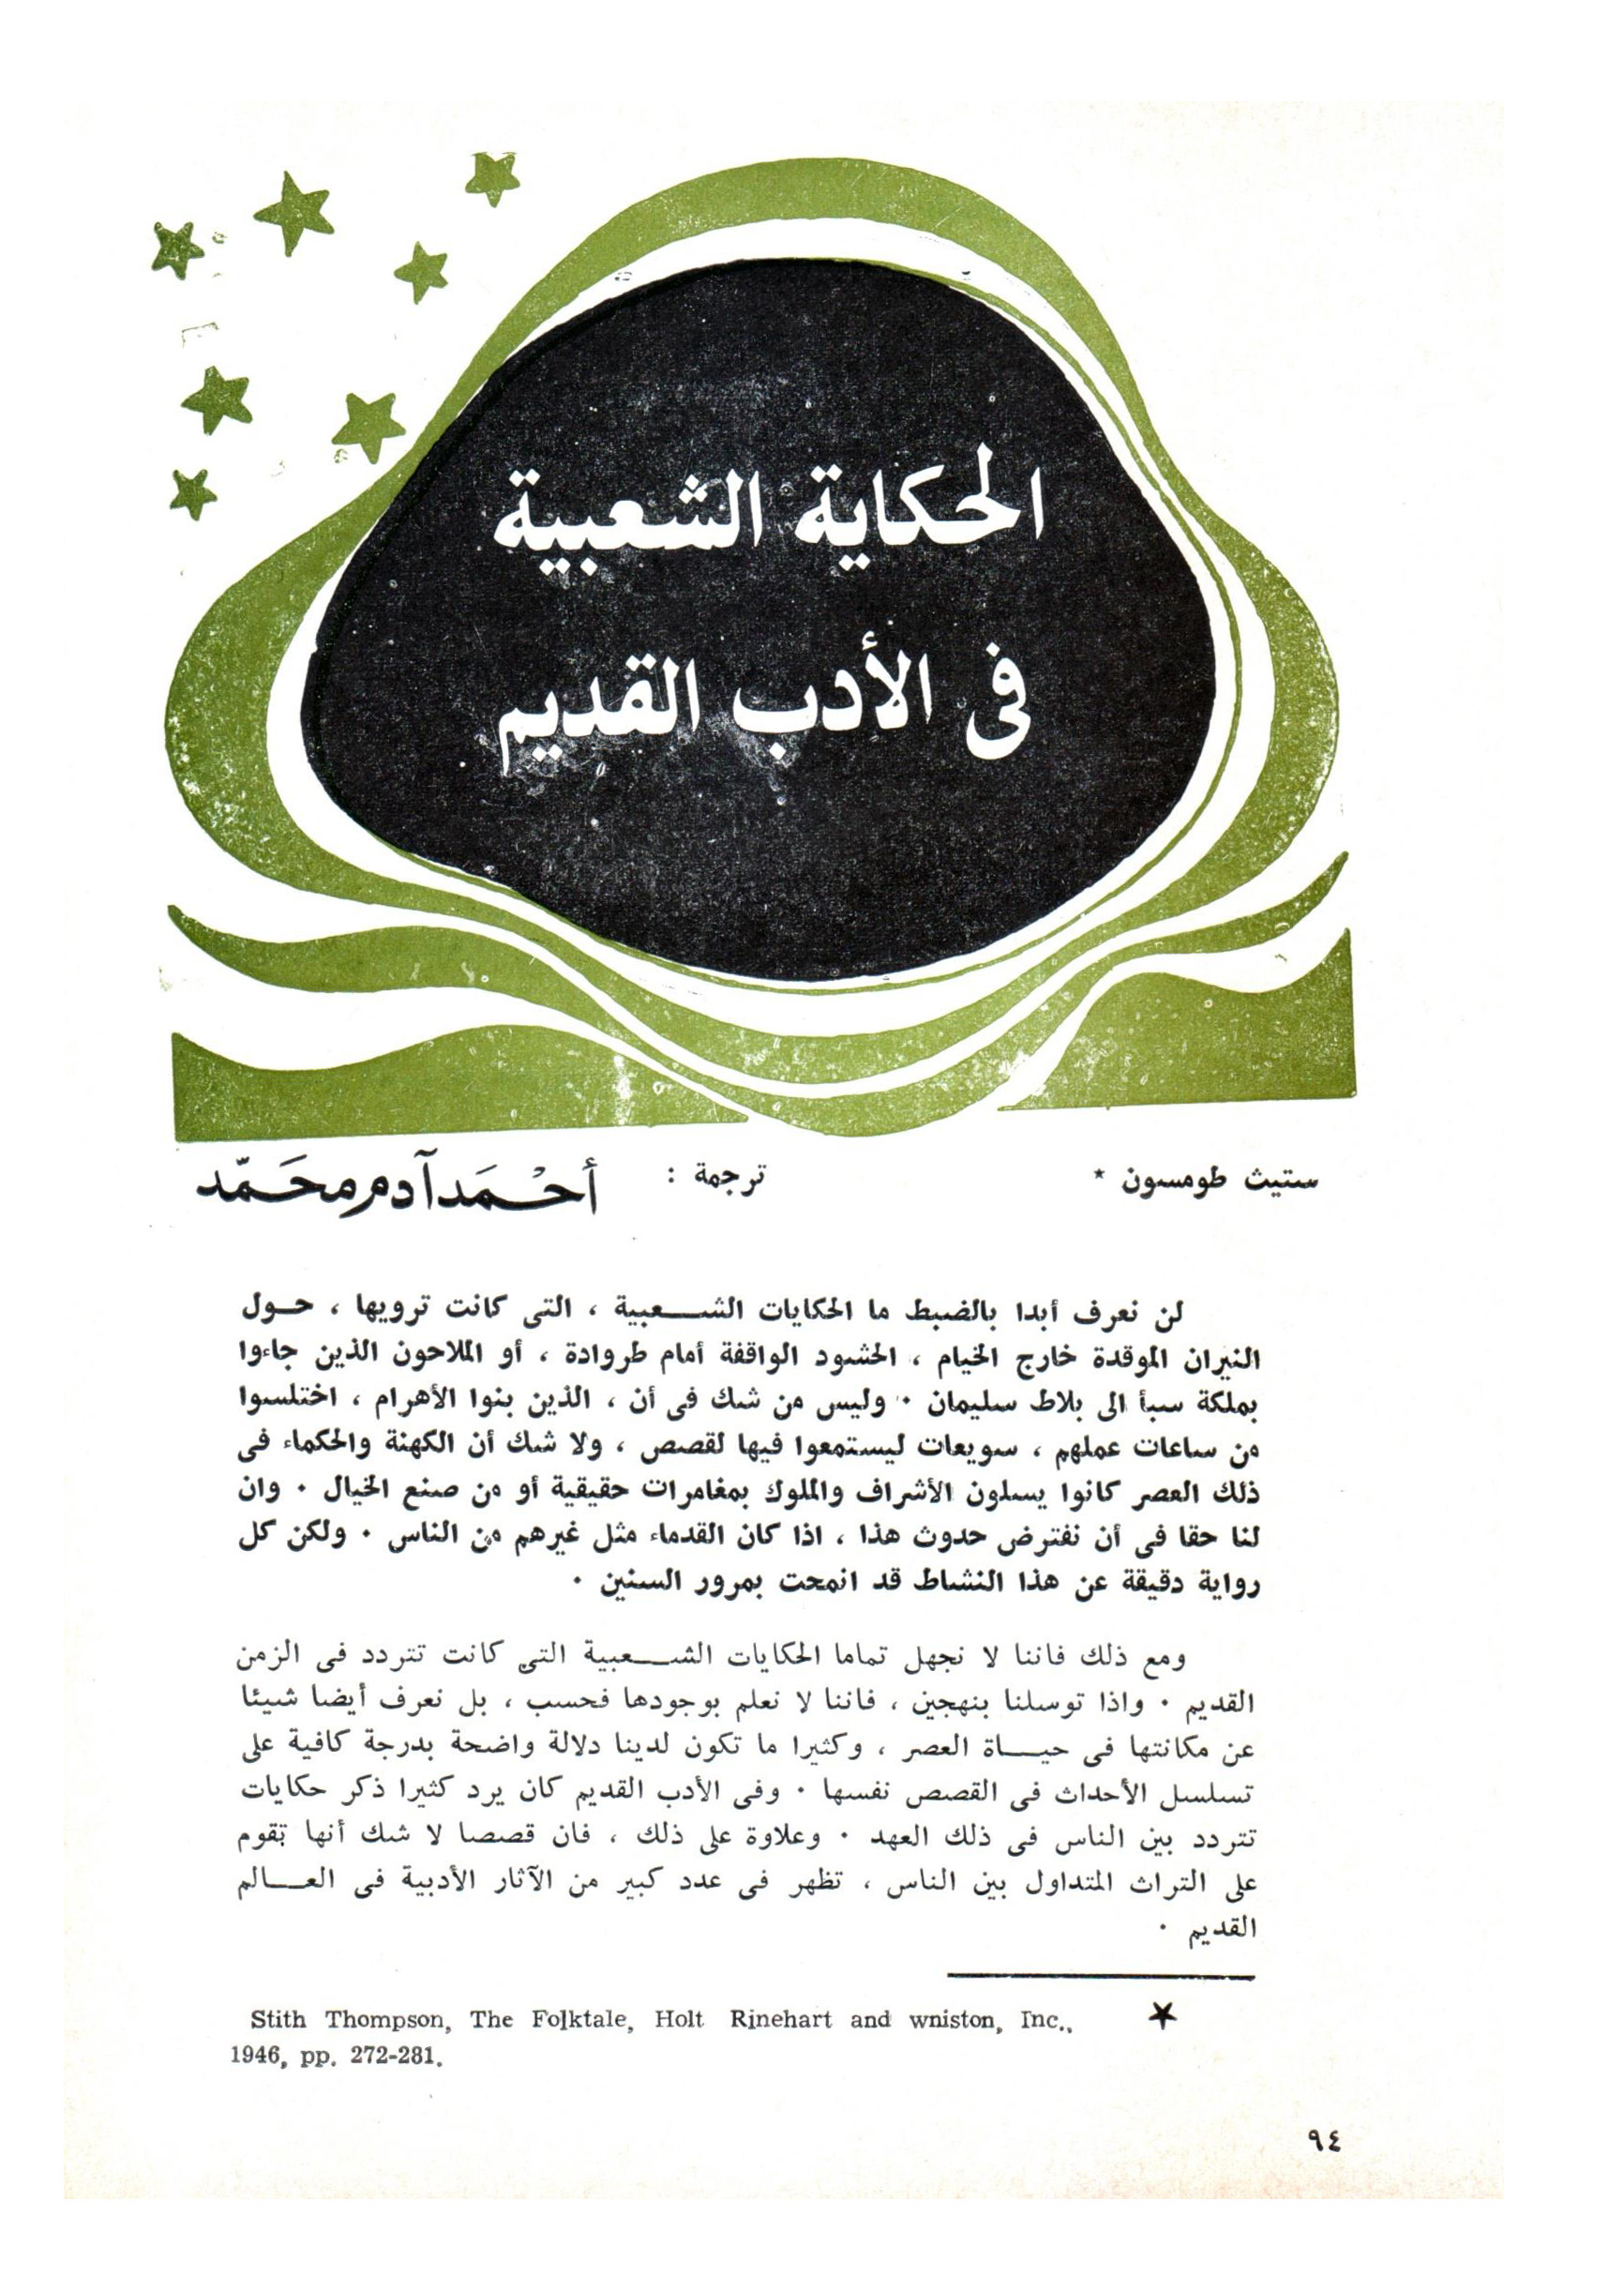 الحكاية الشعبية
فى الأدب القديم
ستيث طومسون *
ترجمة : أحمد آدم محمد
لن نعرف أبدا بالضبط ما الحكايات الشعبية ، التى كانت ترويها ، حول
النيران الموقدة خارج الخيام ، الحشود الواقفة أمام طروادة ، أو الملاحون الذين جاءوا
بملكة سبأ الى بلاط سليمان · وليس من شك فى أن ، الذين بنوا الأهرام ، اختلسوا
من ساعات عملهم ، سويعات ليستمعوا فيها لقصص ، ولا شك أن الكهنة والحكماء فى
ذلك العصر كانوا يسلون الأشراف والملوك بمغامرات حقيقية أو من صنع الخيال · وان
لنا حقا فى أن نفترض حدوث هذا ، اذا كان القدماء مثل غيرهم من الناس · ولكن كل
رواية دقيقة عن هذا النشاط قد انمحت بمرور السنين ·
ومع ذلك فاننا لا نجهل تماما الحكايات الشعبية التى كانت تتردد فى الزمن
القديم · واذا توسلنا بنهجين ، فاننا لا نعلم بوجودها فحسب ، بل نعرف أيضا شيئا
عن مكانتها فى حياة العصر ، وكثيرا ما تكون لدينا دلالة واضحة بدرجة كافية على
تسلسل الأحداث فى القصص نفسها · وفى الأدب القديم كان يرد كثيرا ذكر حكايات
تتردد بين الناس فى ذلك العهد · وعلاوة على ذلك ، فان قصصا لا شك أنها تقوم
على التراث المتداول بين الناس ، تظهر فى عدد كبير من الآثار الأدبية فى العالم
القديم ·
★ Stith Thompson, The Folktale, Holt Rinehart and wniston, Inc.,
1946, pp. 272-281.
٩٤